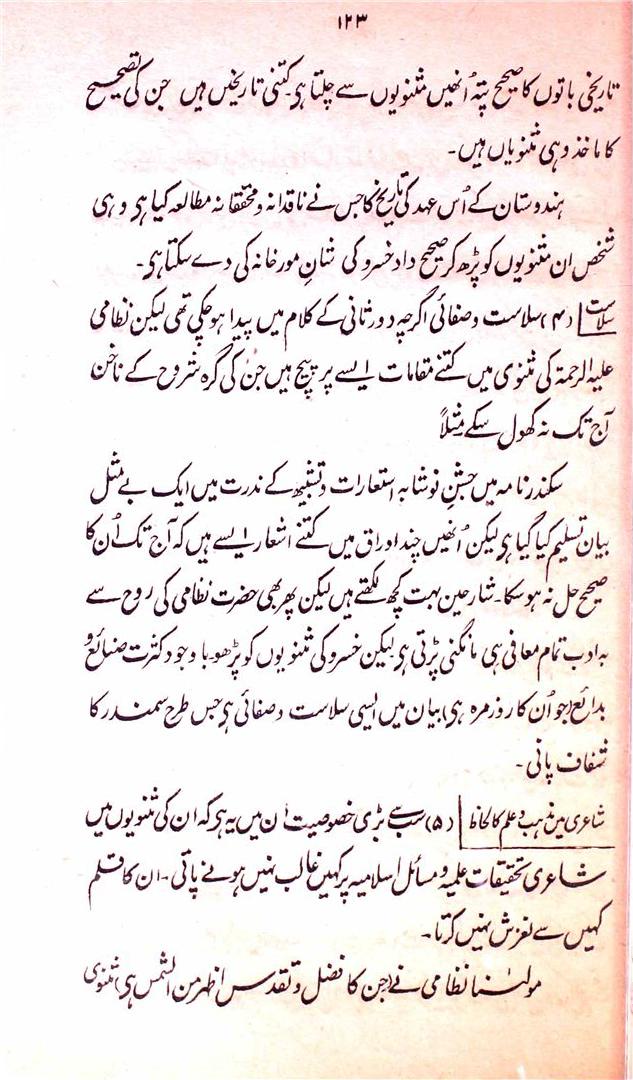 ۱۲۳
تاریخی باتوں کا صحیح پتہ اُنھیں مثنویوں سے چلتا ہی۔ کتنی تاریخیں ہیں جن کی تصحیح
کا ماخذ وہی مثنویاں ہیں۔
ہندوستان کے اُس عہد کی تاریخ کا جس نے ناقدانہ و محققانہ مطالعہ کیا ہی وہی
شخص ان مثنویوں کو پڑھ کر صحیح داد خسرو کی شانِ مورخانہ کی دے سکتا ہی۔
سلاست (۴) سلاست و صفائی اگرچہ دورثانی کے کلام میں پیدا ہو چکی تھی لیکن نظامی
علیہ الرحمۃ کی مثنوی میں کتنے مقامات ایسے پر پیچ ہیں جن کی گرہ شروح کے ناخن
آج تک نہ کھول سکے مثلاً
سکندرنامہ میں جشنِ نوشابہ استعارات و تشبیہ کے ندرت میں ایک بے مثل
بیان تسلیم کیا گیا ہی لیکن اُنھیں چند اوراق میں کتنے اشعار ایسے ہیں کہ آج تک اُن کا
صحیح حل نہ ہو سکا۔ شارحین بہت کچھ لکھتے ہیں لیکن پھر بھی حضرت نظامی کی روح سے
بہ ادب تمام معافی ہی مانگنی پڑتی ہی لیکن خسرو کی مثنویوں کو پڑھو باوجود کثرت صنائع و
بدائع (جو اُن کا روزمرہ ہی) بیان میں ایسی سلاست و صفائی ہی جس طرح سمندر کا
شفاف پانی۔
شاعری میں مذہب و علم کا لحاظ (۵) سب سے بڑی خصوصیت ان میں یہ ہی کہ ان کی مثنویوں میں
شاعری تحقیقات علمیہ و مسائل اسلامیہ پر کہیں غالب نہیں ہونے پاتی۔ ان کا قلم
کہیں سے لغزش نہیں کرتا۔
مولٰنا نظامی نے (جن کا فضل و تقدس اظہر من الشمس ہی) مثنوی